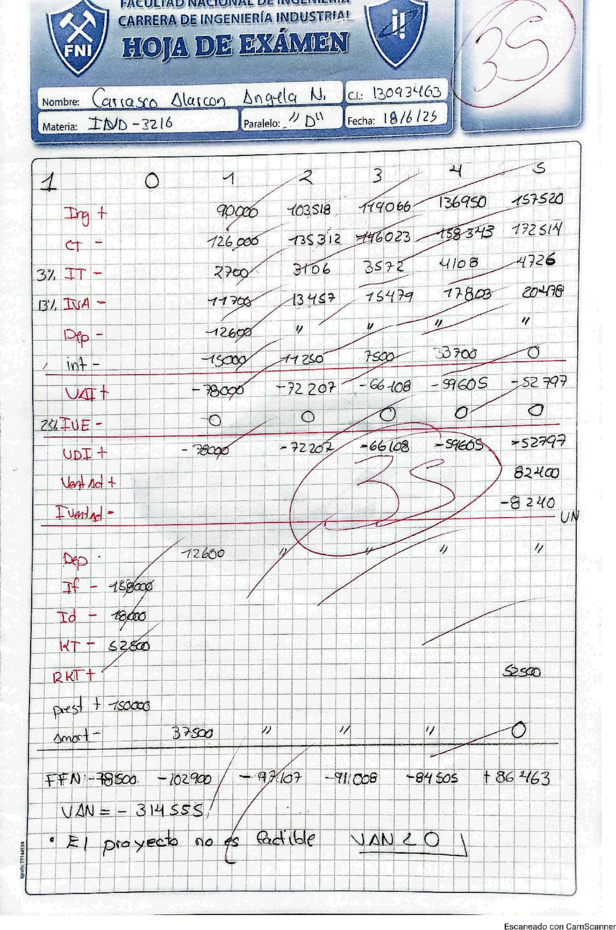 FACULTAD NACIONAL DE INGENIERÍA
CARRERA DE INGENIERÍA INDUSTRIAL
HOJA DE EXÁMEN
FNI
i!
35
Nombre: Carrasco Alarcon Angela N. C.I.: 13093463
Materia: IND-3216 Paralelo: "D" Fecha: 18/6/25
1 0 1 2 3 4 5
Ing + 90000 103518 119066 136950 157520
CT - 126,000 135312 146023 158343 172514
3% IT - 2700 3106 3572 4108 4726
13% IVA - 11700 13457 15479 17803 20478
Dep - 12600 " " " "
int - 15000 11250 7500 33700 0
UAI + -78000 -72207 -66108 -59605 -52797
25% IUE - 0 0 0 0 0
UDI + -78000 -72207 -66108 -59605 -52797
Vent Act + 82400
I vent Ad - -8240
UN
35
Dep. 12600 " " " "
If - 158000
Id - 18000
KT - 52500
RKT + 52500
prest + 150000
Amort - 37500 " " " 0
FFN: -78500. -102900 -97107 -91008 -84505 +86463
VAN = - 314555,
• El proyecto no es factible VAN < 0
Escaneado con CamScanner